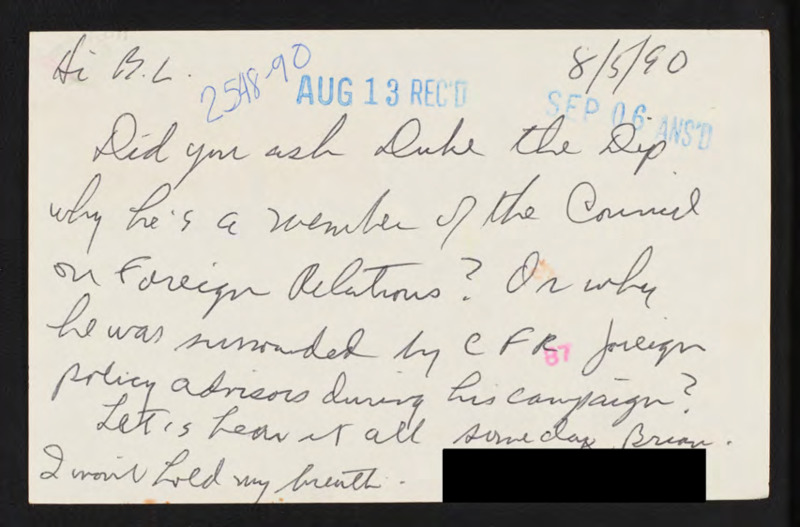 Hi B.L.
8/5/90
2548-90
AUG 13 REC'D
SEP 06 ANS'D
Did you ask Duke the Dip
why he's a member of the Council
on Foreign Relations? Or why
he was surrounded by CFR foreign
87
policy advisors during his campaign?
Let's hear it all someday, Brian.
I won't hold my breath.